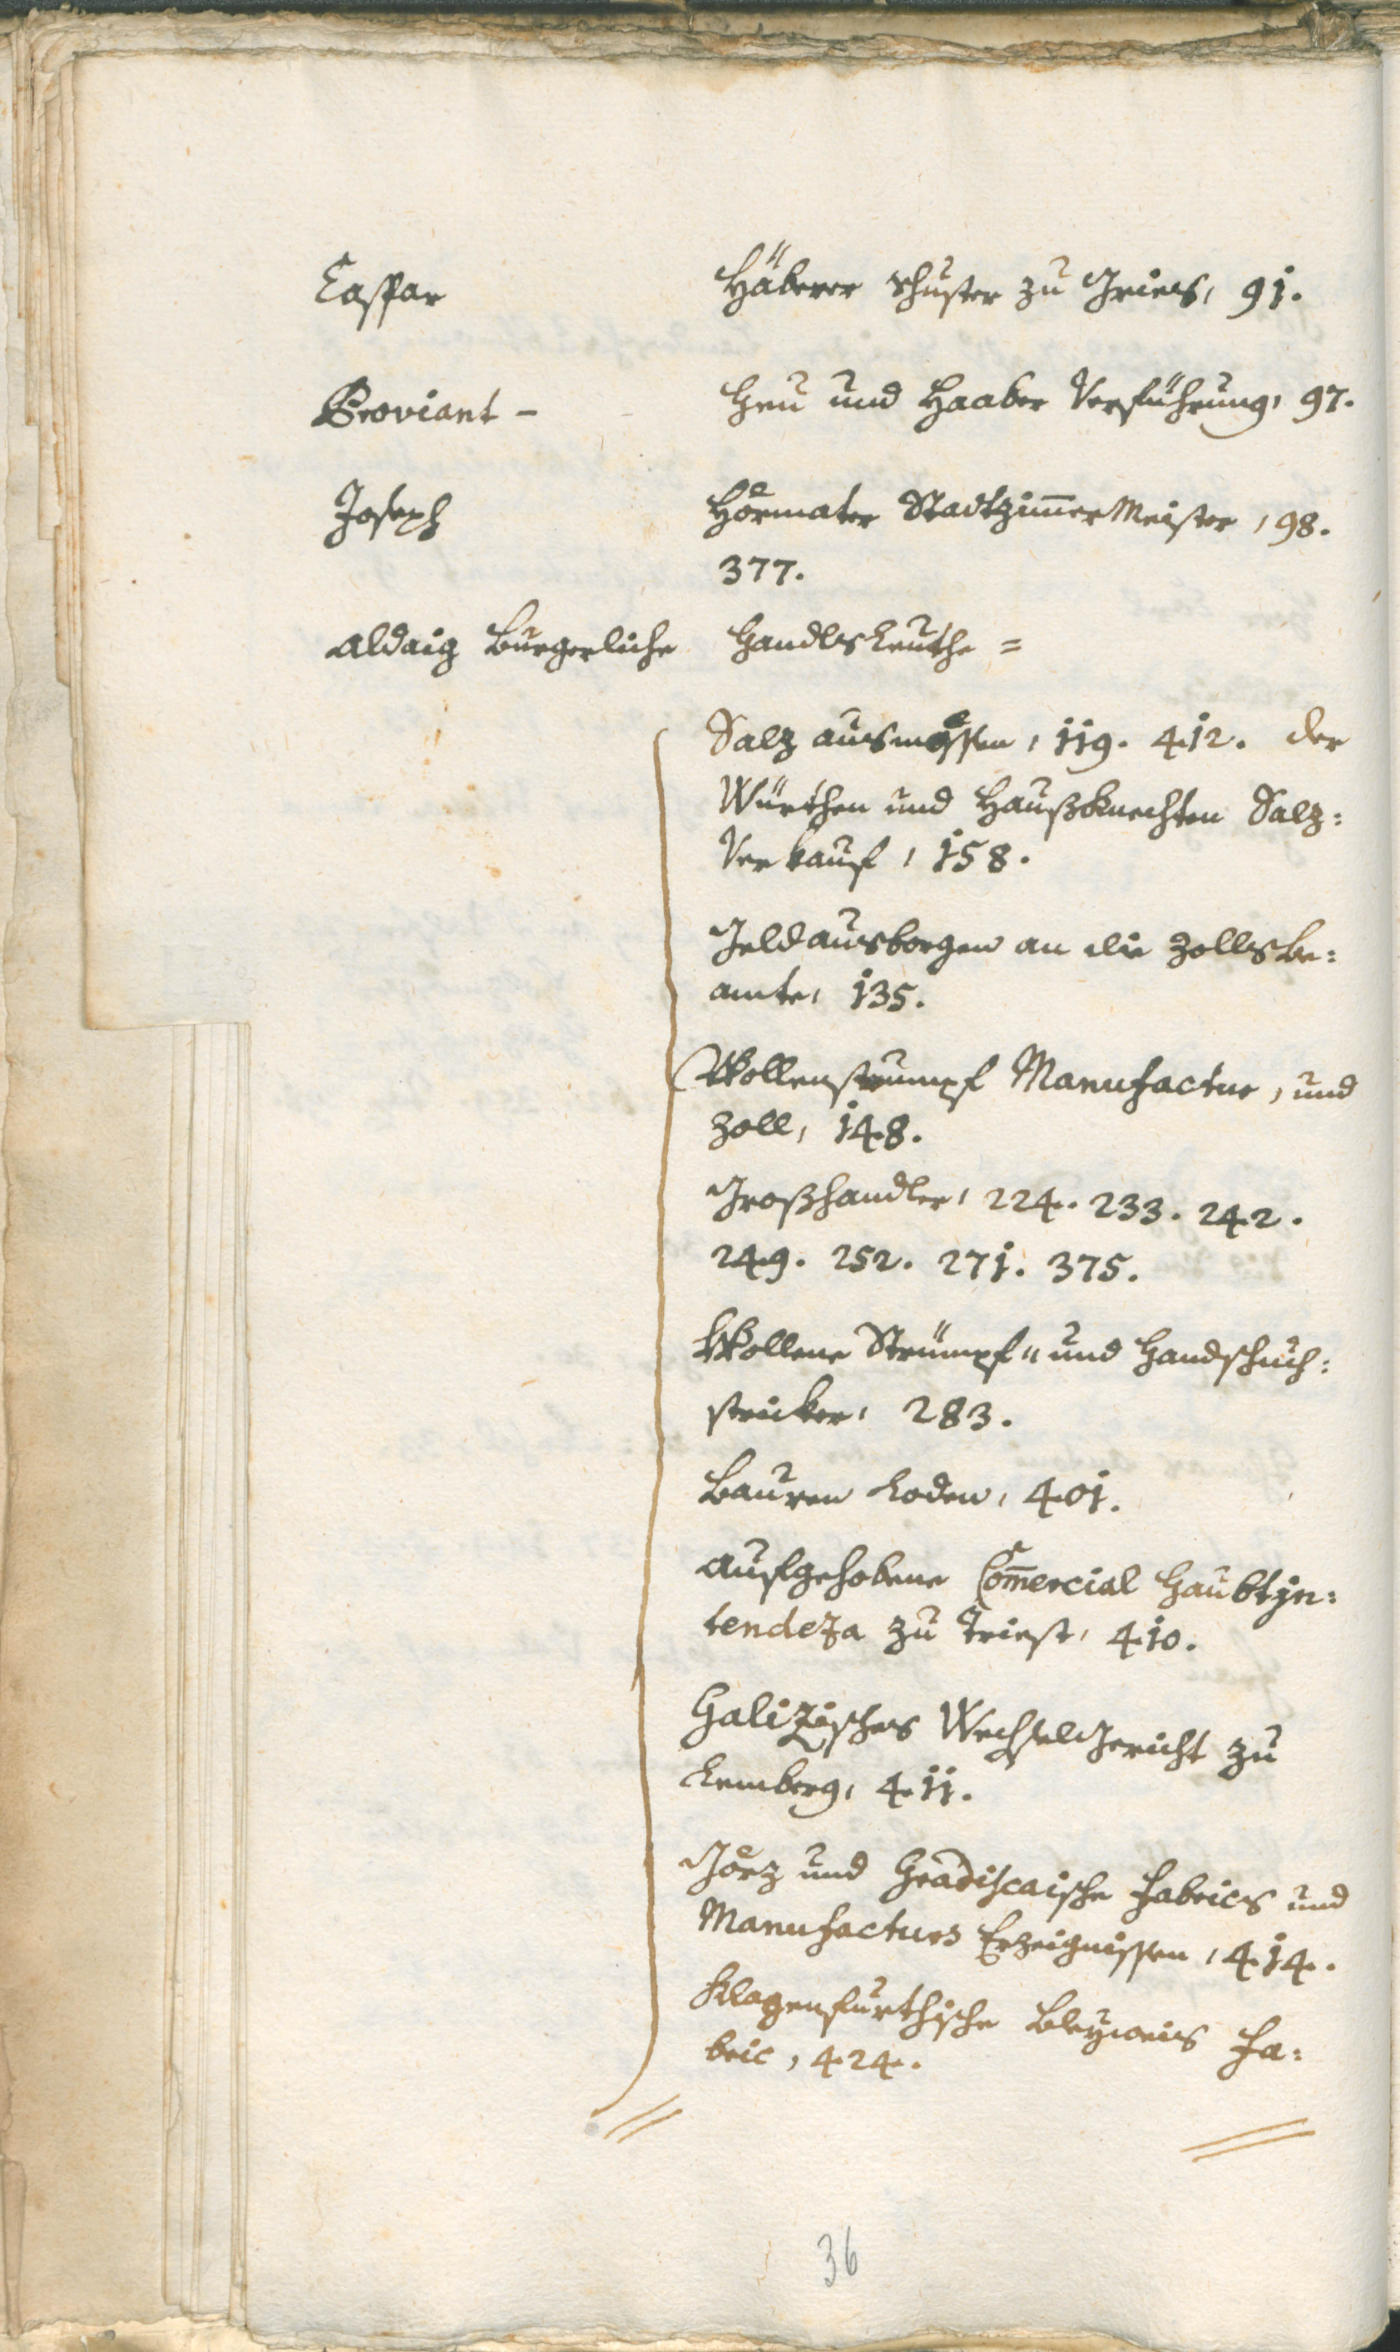 Caspar Häberer Schuster zu Gries, 91.
Proviant - Heu und Haaber Verführung, 97.
Joseph Hörmater Stadtzim̅er Meister, 98.
377.
Aldaig Burgerliche Handls Leuthe =
Salz ausmessen, 119. 412. der
Würthen und Haußknechten Salz:
Verkauf, 158.
Geld ausborgen an die Zollsbe:
amte, 135.
Wollenstrumpf Manufactur, und
Zoll, 148.
Großhandler, 224. 233. 242.
249. 252. 271. 375.
Wollene Strümpf- und Handschuch:
stricker, 283.
Bauren Loden, 401.
Aufgehobene Com̅ercial Haubtjn:
tendeza zu Triest, 410.
Galizisches Wechsel Gericht zu
Lemberg, 411.
Görz und Gradiscaische Fabrics und
Manufacturs Erzeignissen, 414.
Klagenfurthische Bleyweis Fa:
bric, 424.
36